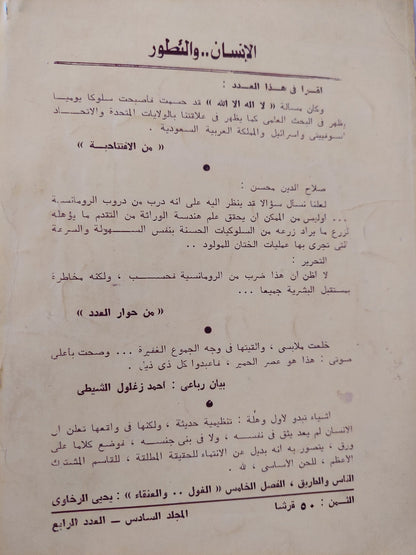 الإنسان.. والتطور
اقرأ فى هذا العدد :
وكأن مسألة « لا اله الا الله » قد حسمت فأصبحت سلوكا يوميا
يظهر فى البحث العلمى كما يظهر فى علاقتنا بالولايات المتحدة والاتحاد
السوفيتى واسرائيل والمملكة العربية السعودية .
« من الافتتاحية »
صلاح الدين محسن :
لعلنا نسأل سؤالا قد ينظر اليه على انه درب من دروب الرومانسية
... أوليس من الممكن أن يحقق علم هندسة الوراثة من التقدم ما يؤهله
لزرع ما يراد زرعه من السلوكيات الحسنة بنفس السهولة والسرعة
التى تجرى بها عمليات الختان للمولود ..
التحرير :
لا أظن أن هذا ضرب من الرومانسية فحسب ، ولكنه مخاطرة
بمستقبل البشرية جميعا ...
« من حوار العدد »
خلعت ملابسى ، وألقيتها فى وجه الجموع الغفيرة ... وصحت بأعلى
صوتى : هذا هو عصر الحمير ، فاعبدوا كل ذى ذيل .
بيان رباعى : أحمد زغلول الشيطى
أشياء تبدو لأول وهلة : تنظيمية حديثة ، ولكنها فى واقعها تعلن أن
الانسان لم يعد يثق فى نفسه ، ولا فى بنى جنسه ، فوضع كلاما على
ورق ، يتصور به أنه بديل عن الانتماء للحقيقة المطلقة ، للقاسم المشترك
الأعظم ، للحن الأساسى ، لله .
الناس والطريق ، الفصل الخامس « الغول .. والعنقاء » : يحيى الرخاوى
الثمن : ٥٠ قرشا
المجلد السادس — العدد الرابع